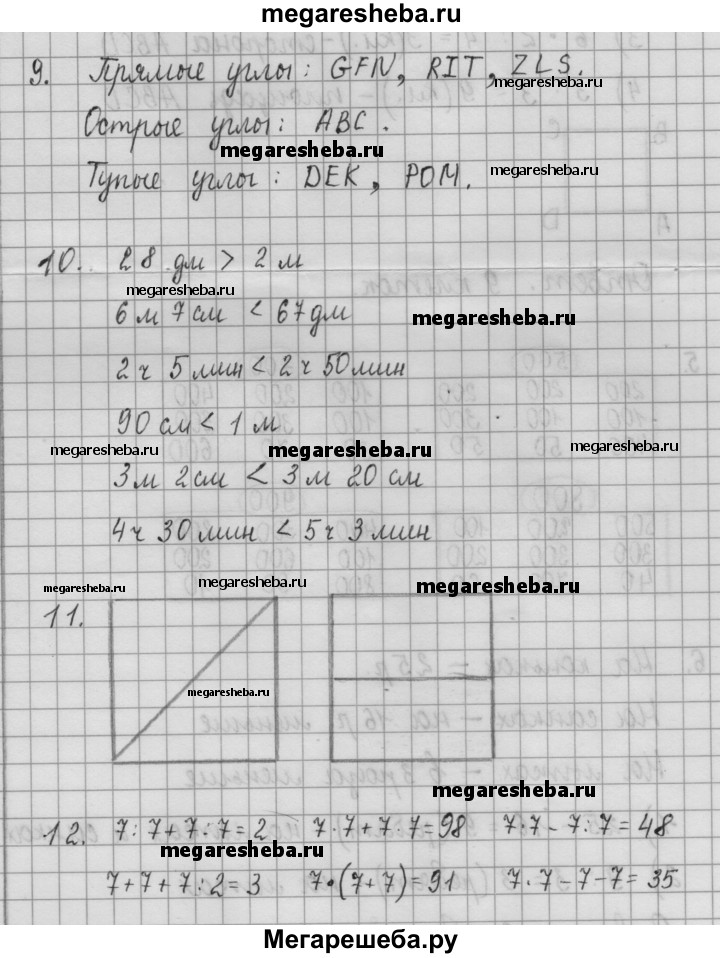 megaresheba.ru
9. Прямые углы: GFN, RIT, ZLS.
megaresheba.ru
Острые углы: ABC.
megaresheba.ru
megaresheba.ru
Тупые углы: DEK, POM.
10. 28 дм > 2 м
megaresheba.ru
6 м 7 см < 67 дм
megaresheba.ru
2 ч 5 мин < 2 ч 50 мин
90 см < 1 м
megaresheba.ru megaresheba.ru megaresheba.ru
3 м 2 см < 3 м 20 см
4 ч 30 мин < 5 ч 3 мин
megaresheba.ru megaresheba.ru megaresheba.ru
11.
megaresheba.ru
megaresheba.ru
12. 7:7+7:7=2 7·7+7:7=98 7·7-7:7=48
megaresheba.ru
7+7+7:2=3 7·(7+7)=91 7·7-7-7=35
Мегарешеба.ру